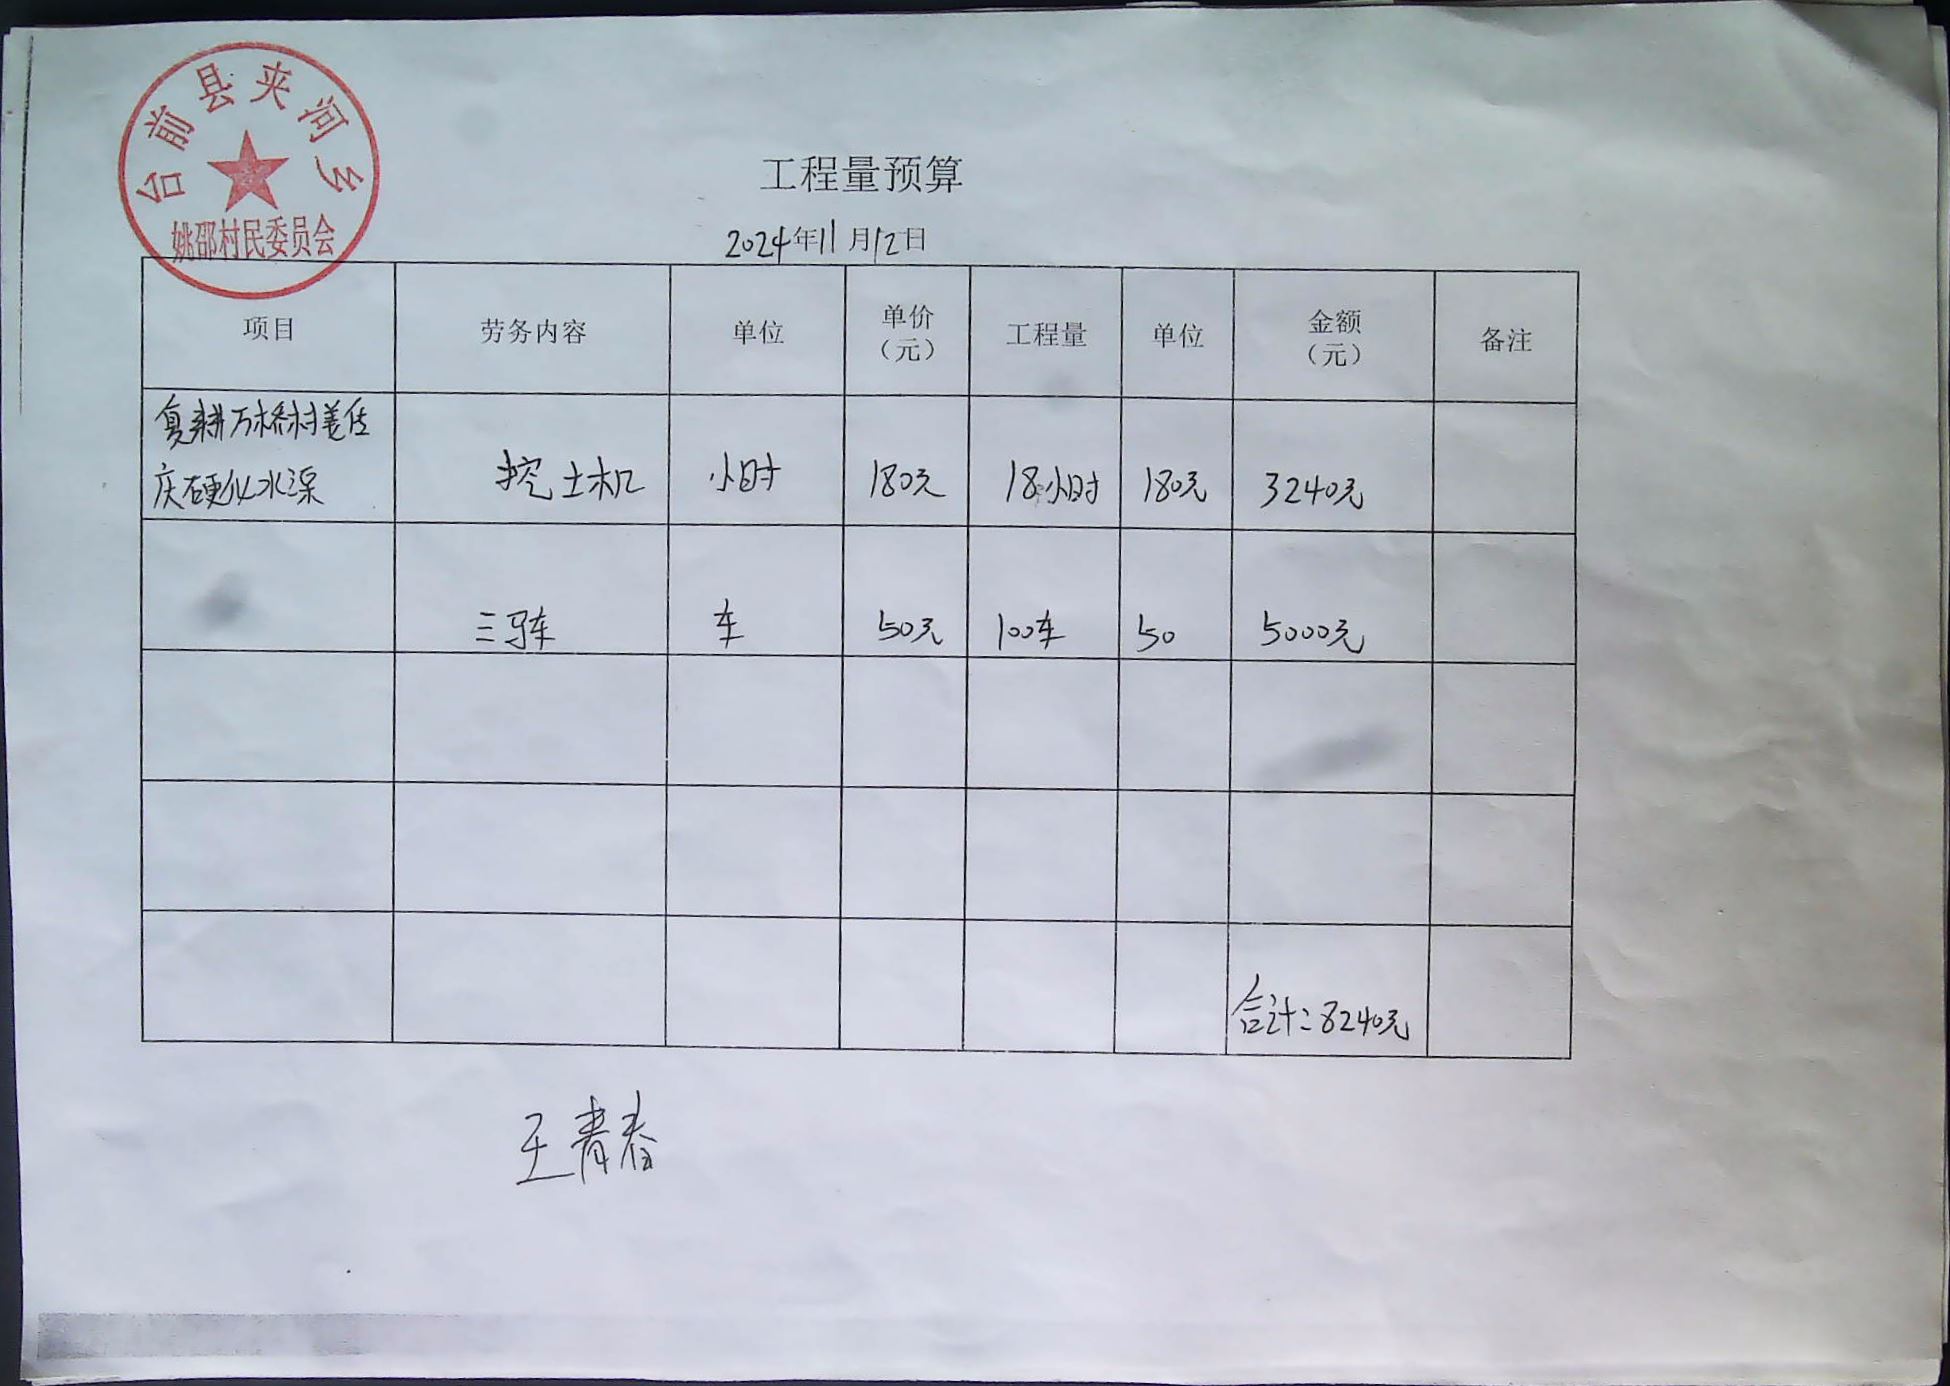 台前县夹河乡
姚邵村民委员会
工程量预算
2024年11月12日
项目 劳务内容 单位 单价（元） 工程量 单位 金额（元） 备注
复耕万桥村姜任
庆硬化水渠 挖土机 小时 180元 18小时 180元 3240元
三马车 车 50元 100车 50 5000元
合计：8240元
王青春